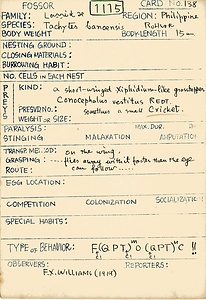 FOSSOR 1175 CARD No. 138
FAMILY: REGION: Philippine
SPECIES: Tachytes
BODY WEIGHT BODY LENGTH 15
NESTING GROUND:
CLOSING MATERIALS:
BURROWING HABIT:
NO. CELLS IN EACH NEST
PREYS
KIND: a short-winged Xiphidium-like grasshopper
Conocephalus
PRESVD NO.: sometimes a small Cricket.
WEIGHT OR SIZE:
PARALYSIS: MIX. DUR.
STINGING MALAXATION AMPUTATION
TRANSP. METHOD: on the wing.
GRASPING: flies away with it faster than the eye
ROUTE: can follow
EGG LOCATION:
COMPETITION COLONIZATION SOCIALIZATION
SPECIAL HABITS:
TYPE OF BEHAVIOR:
OBSERVERS: REPORTERS:
F.X. WILLIAMS (1919)